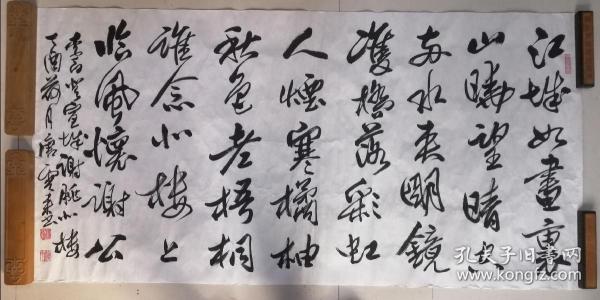 江城如畫裏
山曉望晴空
兩水夾明鏡
雙橋落彩虹
人煙寒橘柚
秋色老梧桐
誰念北樓上
臨風懷謝公
李白登宣城謝脁北樓
丁酉 月唐
孔夫子旧书网
www.kongfz.com